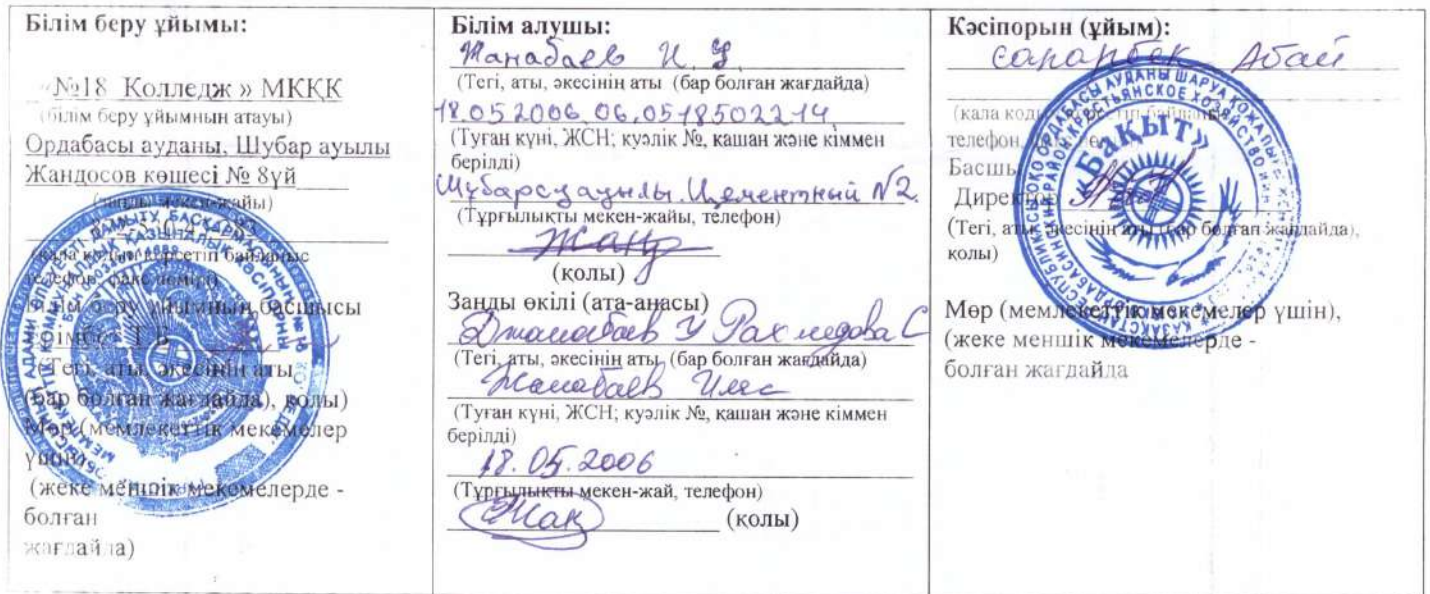 Білім беру ұйымы:
«№18 Колледж » МКҚК
(білім беру ұйымның атауы)
Ордабасы ауданы, Шубар ауылы
Жандосов көшесі № 8үй
(заңды мекен-жайы)
(қала кодын көрсетіп байланыс
телефон, факс нөмірі)
Білім беру ұйымның басшысы
Т.Б.
(Тегі, аты, әкесінің аты
(бар болған жағдайда), қолы)
Мөр (мемлекеттік мекемелер
үшін)
(жеке меншік мекемелерде -
болған
жағдайда)
Білім алушы:
Жанабаев И У
(Тегі, аты, әкесінің аты (бар болған жағдайда)
18.05.2006 06.0518502214
(Туған күні, ЖСН; куәлік №, қашан және кіммен
берілді)
Цементный №2
(Тұрғылықты мекен-жайы, телефон)
(қолы)
Заңды өкілі (ата-анасы)
Джанабаев У Рахмедова С
(Тегі, аты, әкесінің аты (бар болған жағдайда)
Жанабаев
(Туған күні, ЖСН; куәлік №, қашан және кіммен
берілді)
18.05.2006
(Тұрғылықты мекен-жай, телефон)
(қолы)
Кәсіпорын (ұйым):
Абай
(қала коды
телефон,
Басшы
Директор
(Тегі, аты, әкесінің аты (бар болған жағдайда),
қолы)
«БАҚЫТ»
Мөр (мемлекеттік мекемелер үшін),
(жеке меншік мекемелерде -
болған жағдайда